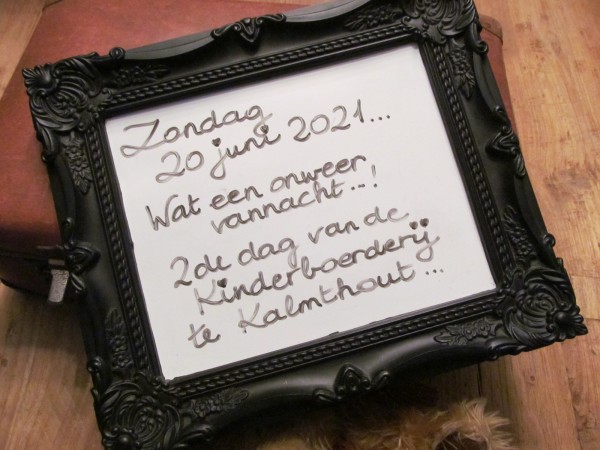 Zondag
20 juni 2021...
Wat een onweer
vannacht...!
2de dag van de
Kinderboerderij
te Kalmthout...